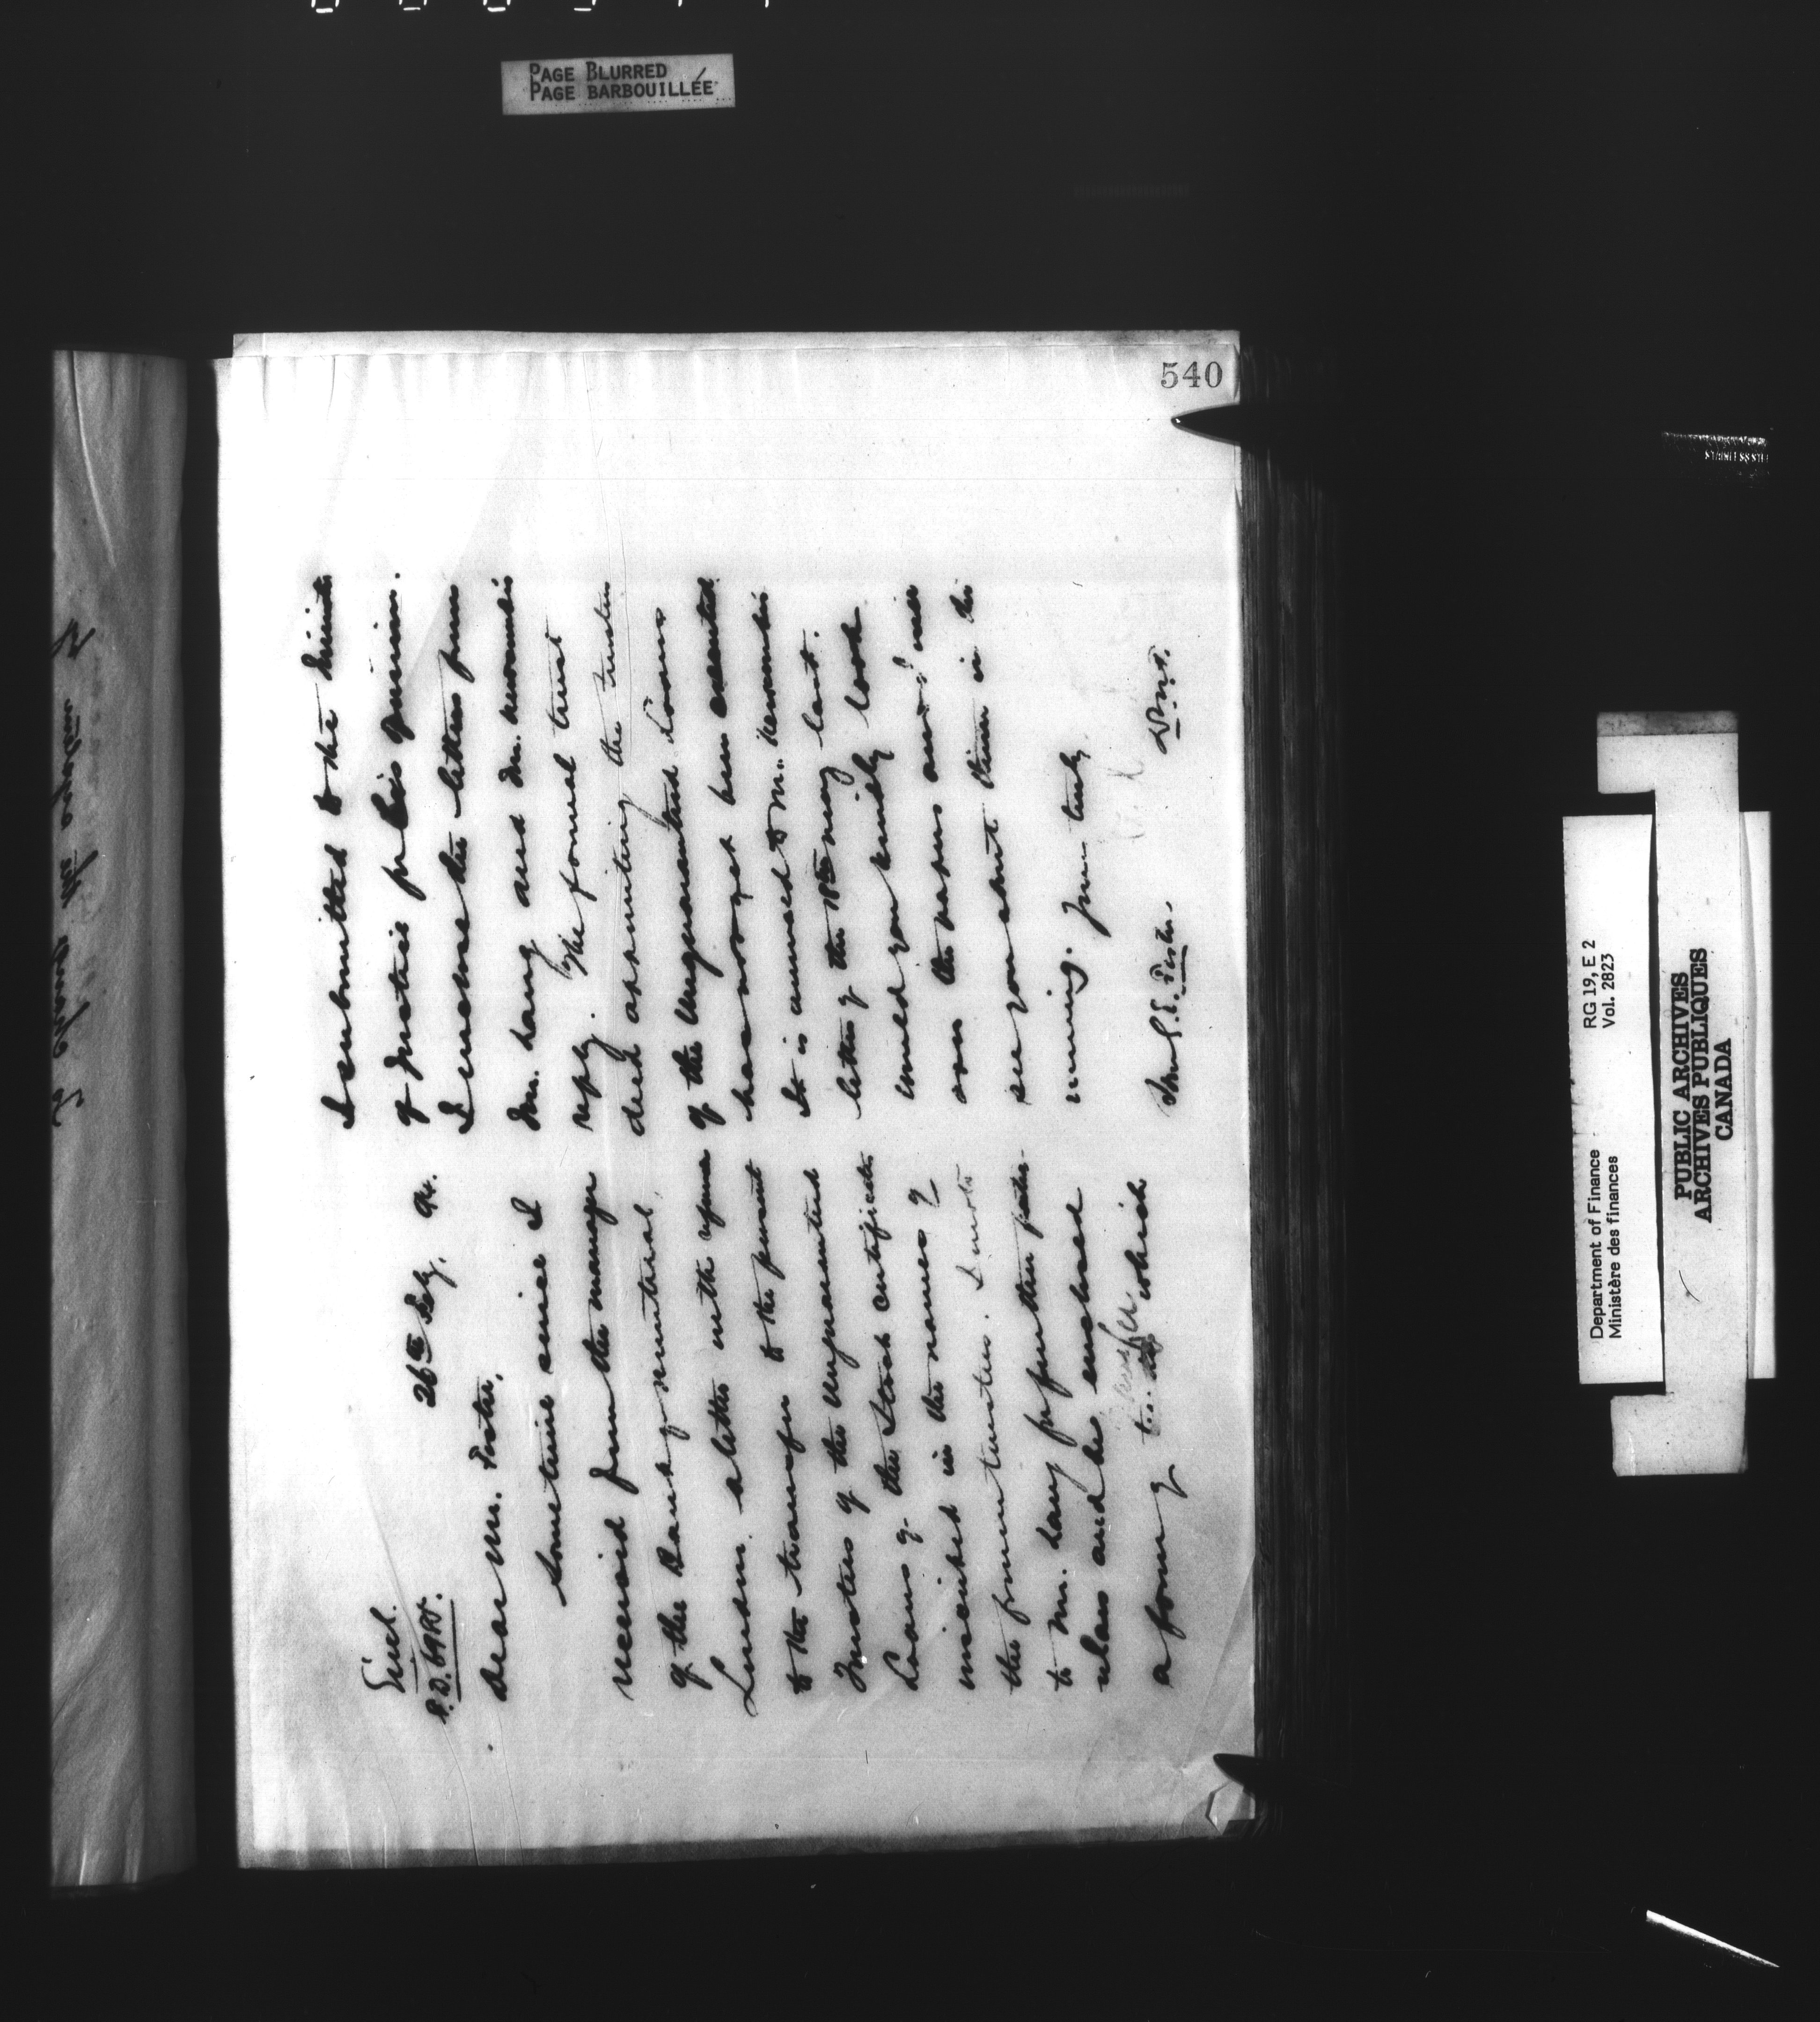 PAGE BLURRED
PAGE BARBOUILLÉE
540
Encl.
26th July, 94.
Dear Mr. Foster,
Sometime since I
received from the manager
of the Bank of Montreal,
London, a letter with reference
to the transfer to the present
Trustees of the Unguaranteed
Loans of the Stock certificates
inscribed in the names of
the former trustees. I wrote
to Mr. Lang for further
and he enclosed
a form of transfer which
I submitted to the
of Justice for his opinion.
I enclose the letters from
Mr. Lang and Mr. Newcombe's
reply. The formal trust
deed appointing the trustees
of the Unguaranteed Loans
has not yet been executed.
It is annexed to Mr. Newcombe's
letter of the 18th May last.
Would you kindly look
over the papers and I will
see you about them in the
morning. Yours truly
Hon. G. E. Foster.
RG 19, E 2
Vol. 2823
Department of Finance
Ministère des finances
PUBLIC ARCHIVES
ARCHIVES PUBLIQUES
CANADA